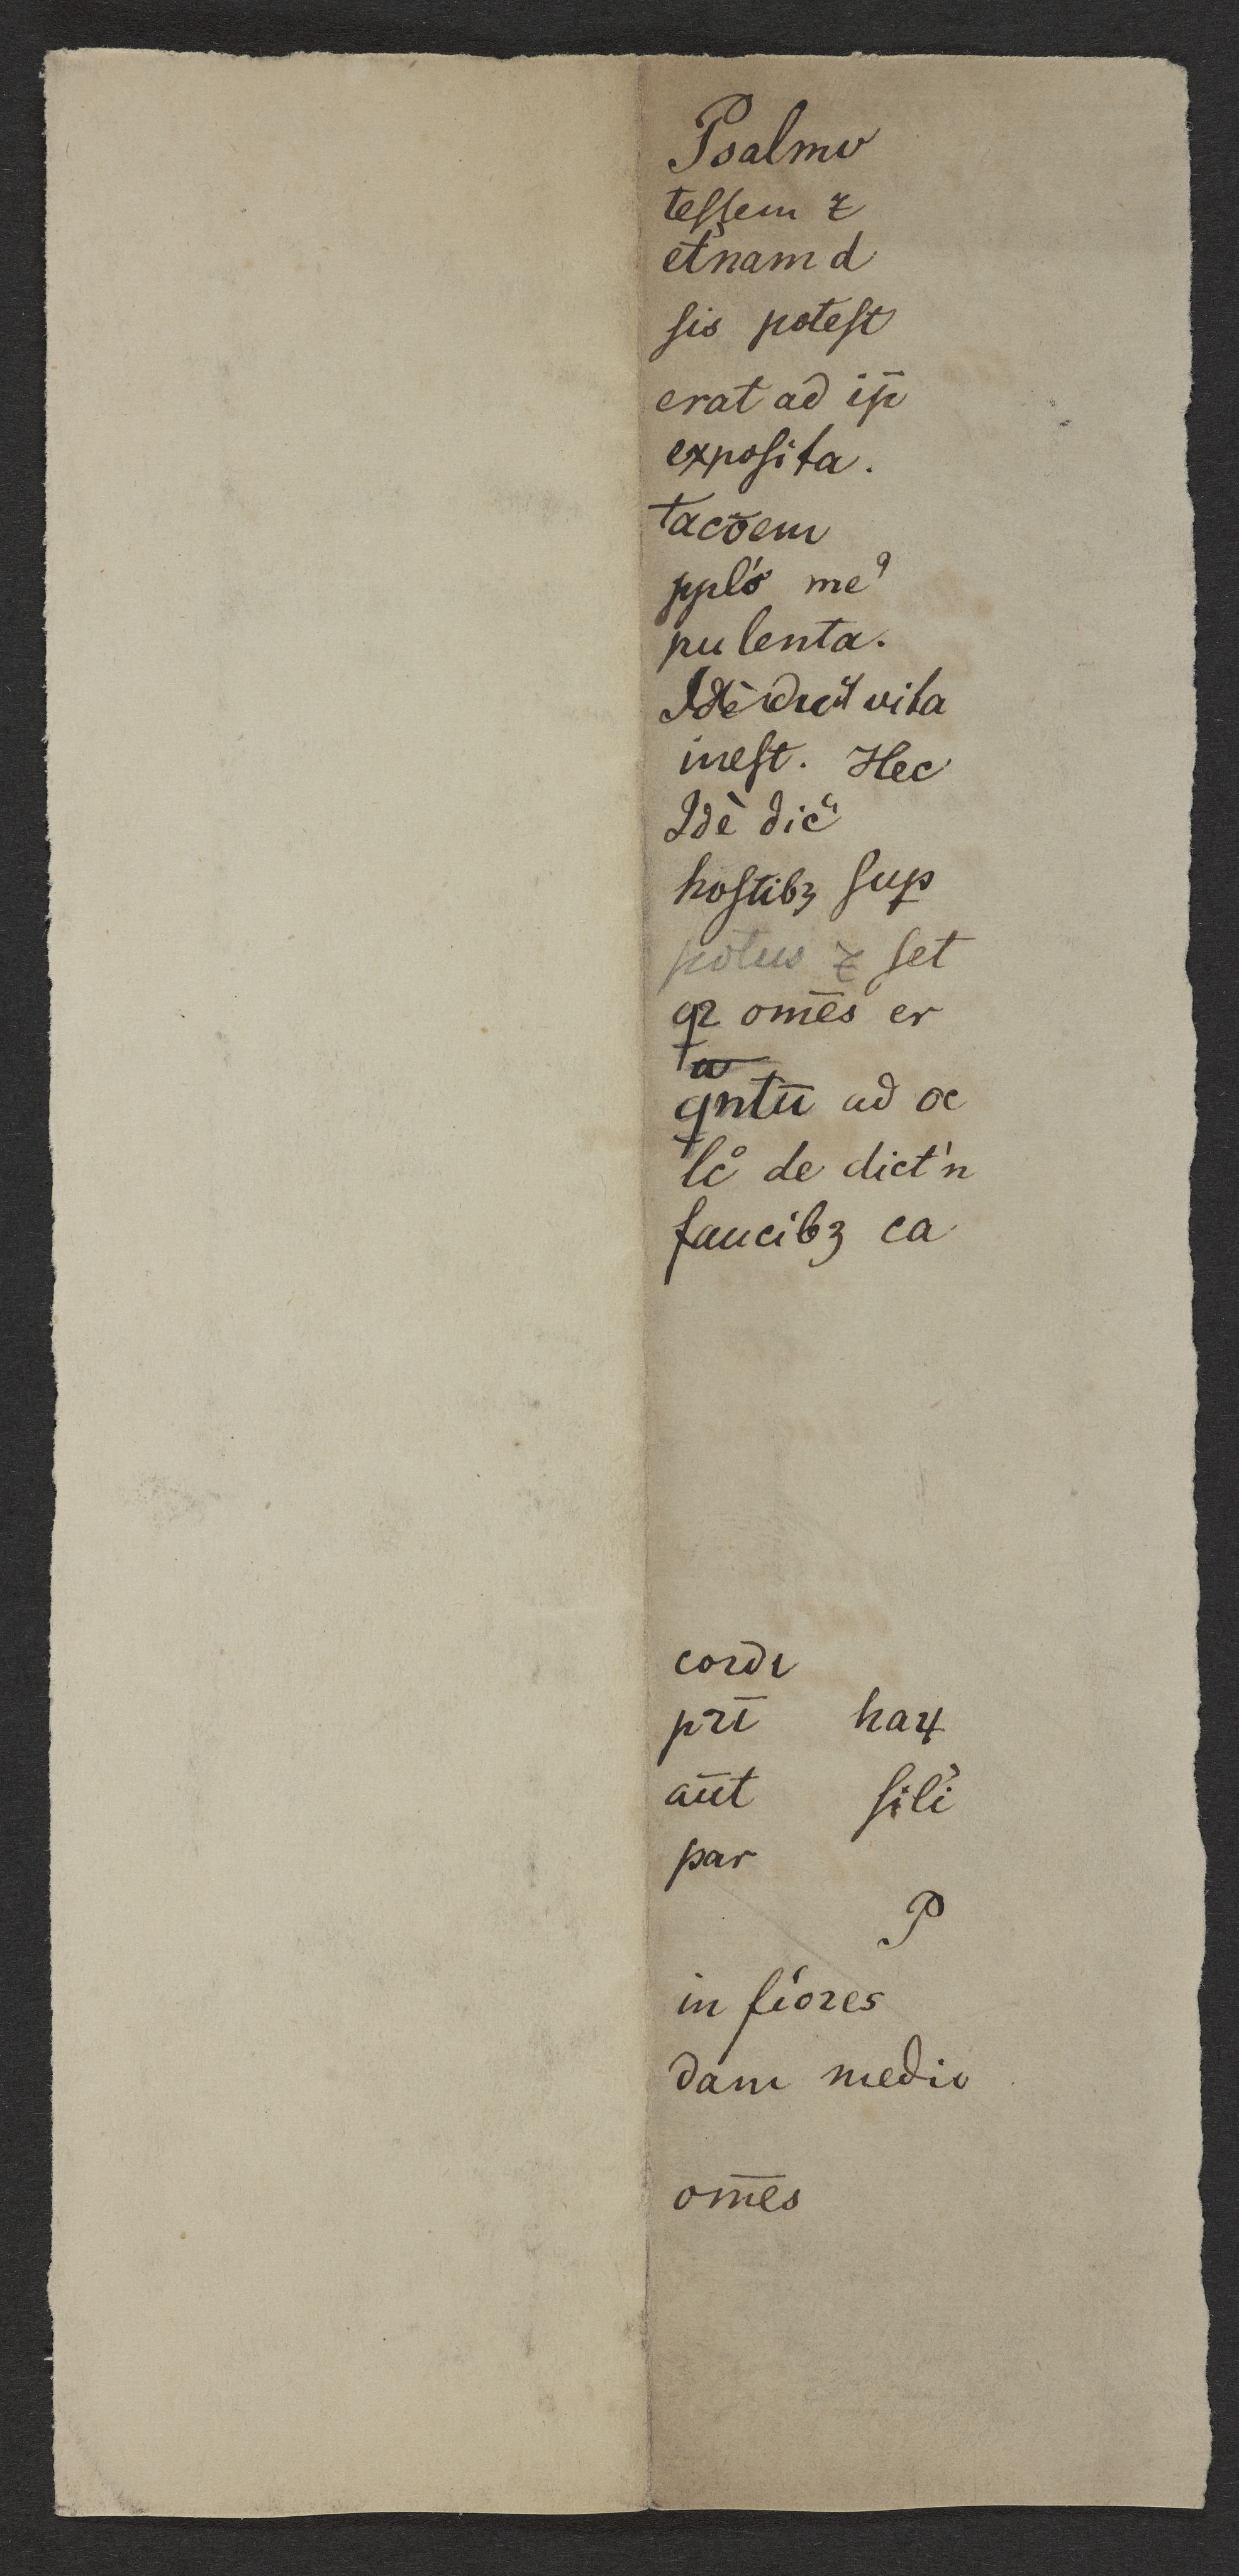 Psalmo
teſſem ⁊
et'nam d
ſis poteſt
erat ad ip̄
expoſita.
tac̄oem
ppl'o meꝰ
pulenta.
Idē vita
ineſt. Hec
Idē dic̄
hoſtibꝫ ſup
potus ⁊ ſet
qꝛ om̄es er
qntū ad oc
lc̊ de dict'n
faucibꝫ ca
coꝛdi
pꝛī haꝝ
aūt ſil'i
par
P
in f'ioꝛes
dam medio
om̄es